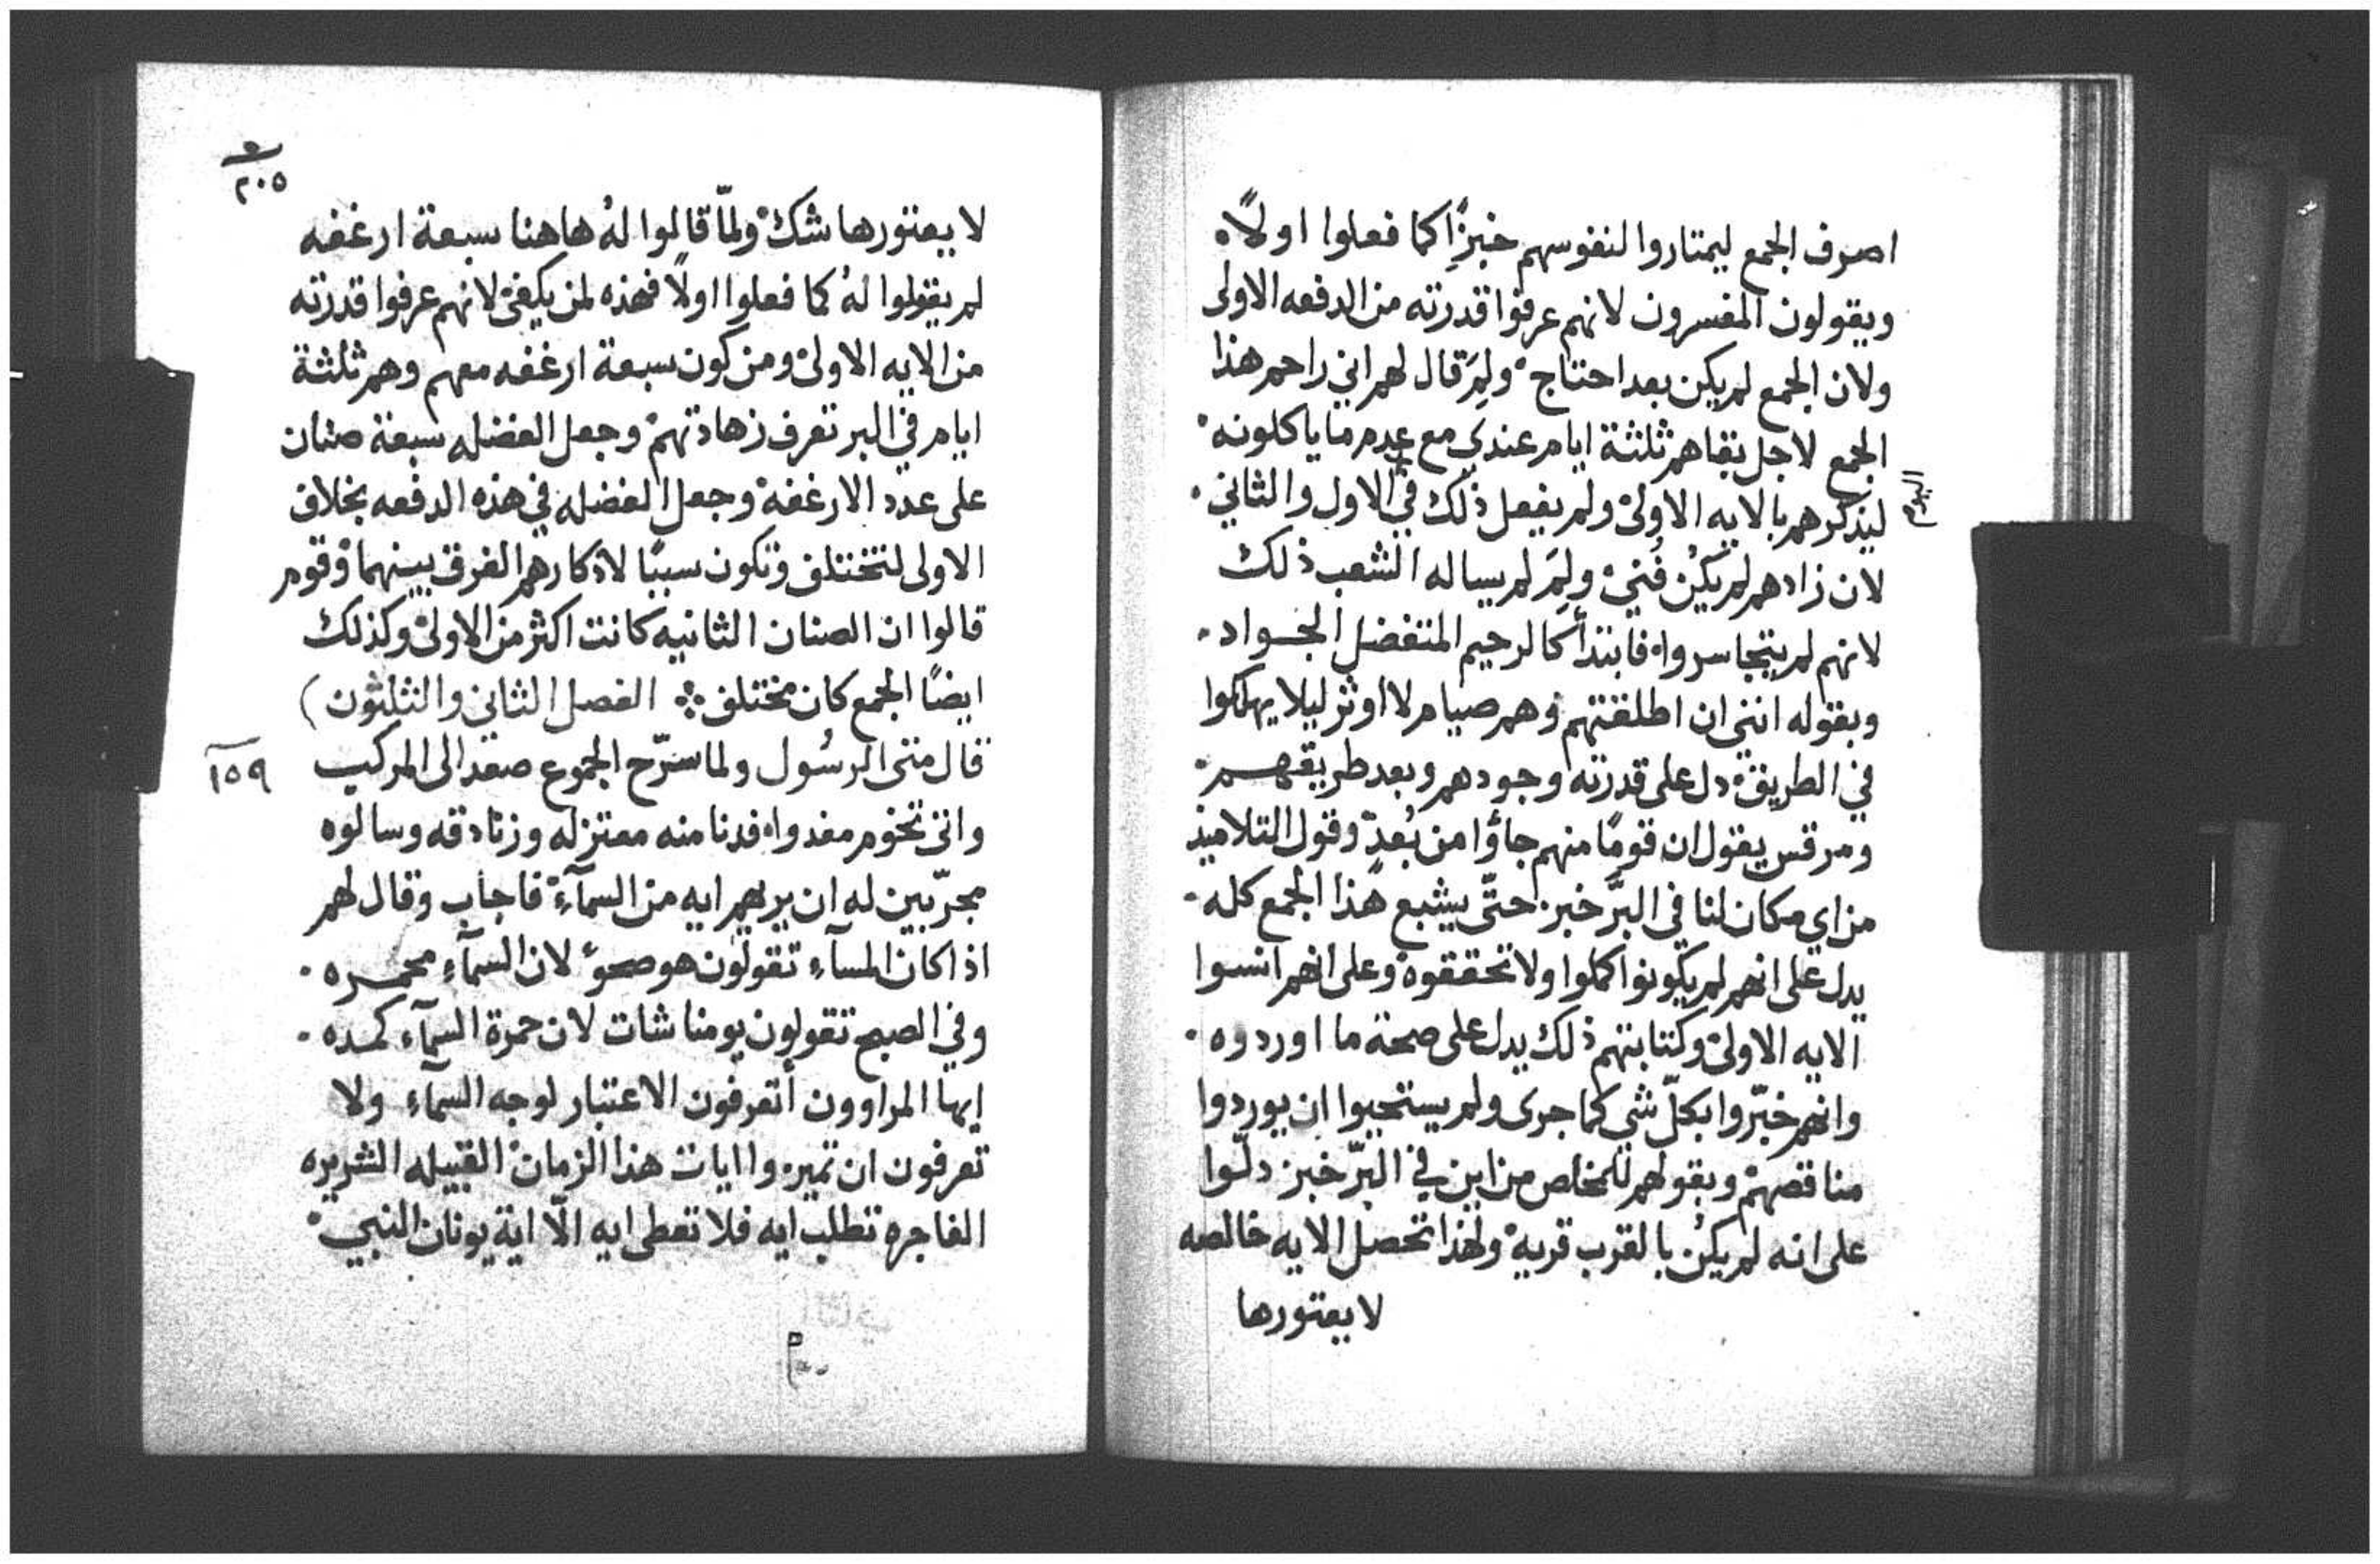 اصرف الجمع ليمتاروا لنفوسهم خبزًا كما فعلوا اولاً.
ويقولون المفسرون لانهم عرفوا قدرته من الدفعه الاولى
ولان الجمع لم يكن بعد احتاج. ولِمَ قال لهم اني راحم هذا
الجمع لاجل بقاهم ثلثة ايام عندي مع عدم ما ياكلونه.
ليذكرهم بالايه الاولى ولم يفعل ذلك في الاول والثاني.
اليوم
لان زادهم لم يكُن فُني. ولِمَ لم يساله الشعب ذلك
لانهم لم يتجاسروا. فابتدأ كالرحيم المتفضل الجواد.
وبقوله انني ان اطلقتهم وهم صيام لا اوثر ليلا يهلكوا
في الطريق. دل على قدرته وجودهم وبعد طريقهم.
ومرقس يقول ان قومًا منهم جاؤا من بُعدٍ. وقول التلاميذ
من اي مكان لنا في البرّ خبز حتّى يشبع هذا الجمع كله.
يدل على انهم لم يكونوا كملوا ولا تحققوه. وعلى انهم انسوا
الايه الاولى. وكتابتهم ذلك يدل على صحة ما اوردوه.
وانهم خبّروا بكلّ شي كما جرى ولم يستحيوا ان يوردوا
مناقصهم. وبقولهم للمخلص من اين في البرّ خبز دلّوا
على انه لم يكُن بالقرب قريه. ولهذا تحصل الايه خالصه
لا يعتورها
٢٠٥
لا يعتورها شك. ولمّا قالوا لهُ هاهنا سبعة ارغفه
لم يقولوا لهُ كما فعلوا اولاً فهذه لمن يكفي. لانهم عرفوا قدرته
من الايه الاولى. ومن كون سبعة ارغفه معهم وهم ثلثة
ايام في البر تعرف زهادتهم. وجعل الفضله سبعة صنان
على عدد الارغفة. وجعل الفضله في هذه الدفعه بخلاف
الاولى لتختلف وتكون سببًا لاذكارهم الفرق بينهما. وقوم
قالوا ان الصنان الثانيه كانت اكثر من الاولى. وكذلك
ايضًا الجمع كان مختلف ⁘ الفصل الثاني والثلثون)
قال متى الرسُول ولما سرّح الجموع صعد الى المركب
١٥٩
واتى تخوم مغدوا. فدنا منه معتزله وزنادقه وسالوه
مجرّبين له ان يريهم ايه من السمآء. فاجاب وقال لهم
اذا كان المسآء تقولون هو صحوٌ لان السمآء محمره.
وفي الصبح تقولون يومنا شات لان حمرة السمآء كمده.
ايها المراوون أتعرفون الاعتبار لوجه السمآء ولا
تعرفون ان تميزوا ايات هذا الزمان. القبيله الشريره
الفاجره تطلب ايه فلا تعطى ايه الّا اية يونان النبي.